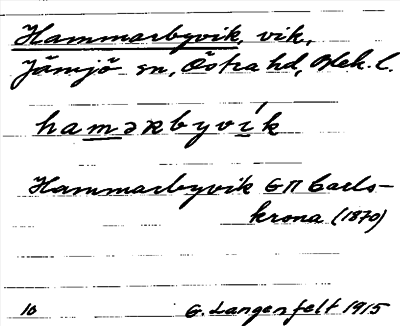 Hammarbyvik, vik,
Jämjö sn, Östra hd, Blek. l.
haməʀbyvík
Hammarbyvik GΠ Carls-
krona (1870)
10 G. Langenfelt 1915